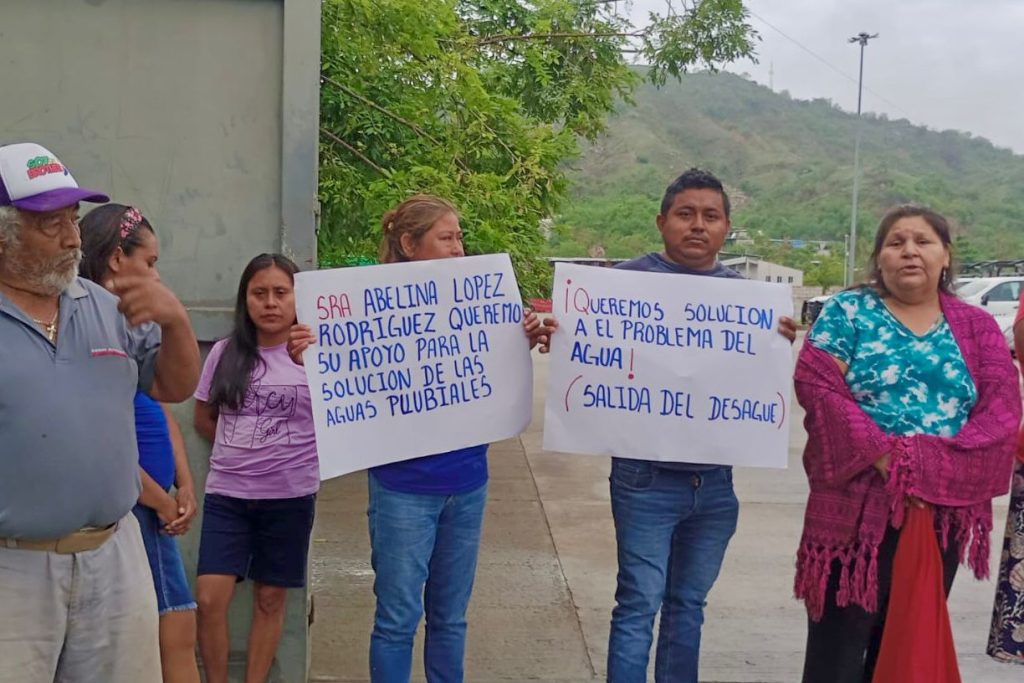 SRA ABELINA LOPEZ
RODRIGUEZ QUEREMO
SU APOYO PARA LA
SOLUCION DE LAS
AGUAS PLUBIALES
¡QUEREMOS SOLUCION
A EL PROBLEMA DEL
AGUA!
(SALIDA DEL DESAGUE)
Girl